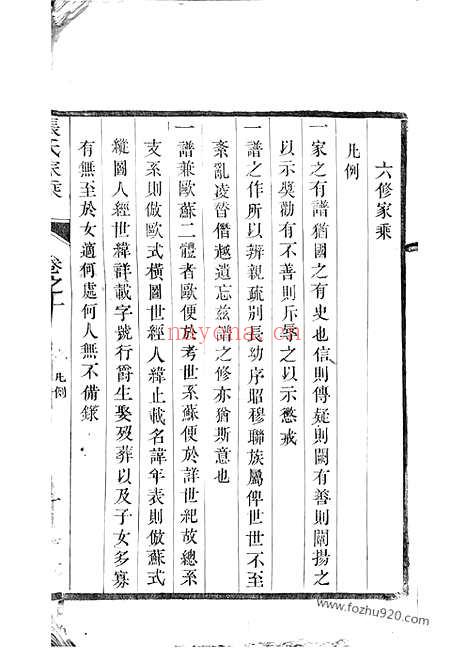 六修家乘
凡例
一家之有譜猶國之有史也信則傳疑則闕有善則闡揚之
以示奬勸有不善則斥辱之以示懲戒
一譜之作所以辨親疏别長幼序昭穆聯族屬俾世世不至
紊亂凌替僭越遺忘兹譜之修亦猶斯意也
一譜兼歐蘇二體者歐便於考世系蘇便於詳世紀故總系
支系則倣歐式橫圖世經人緯止載名諱年表則倣蘇式
縱圖人經世緯詳載字號行爵生娶殁葬以及子女多寡
有無至於女適何處何人無不備錄
張氏家乘
卷之十
凡例
一
mryona.cn
www.fozhu920.com